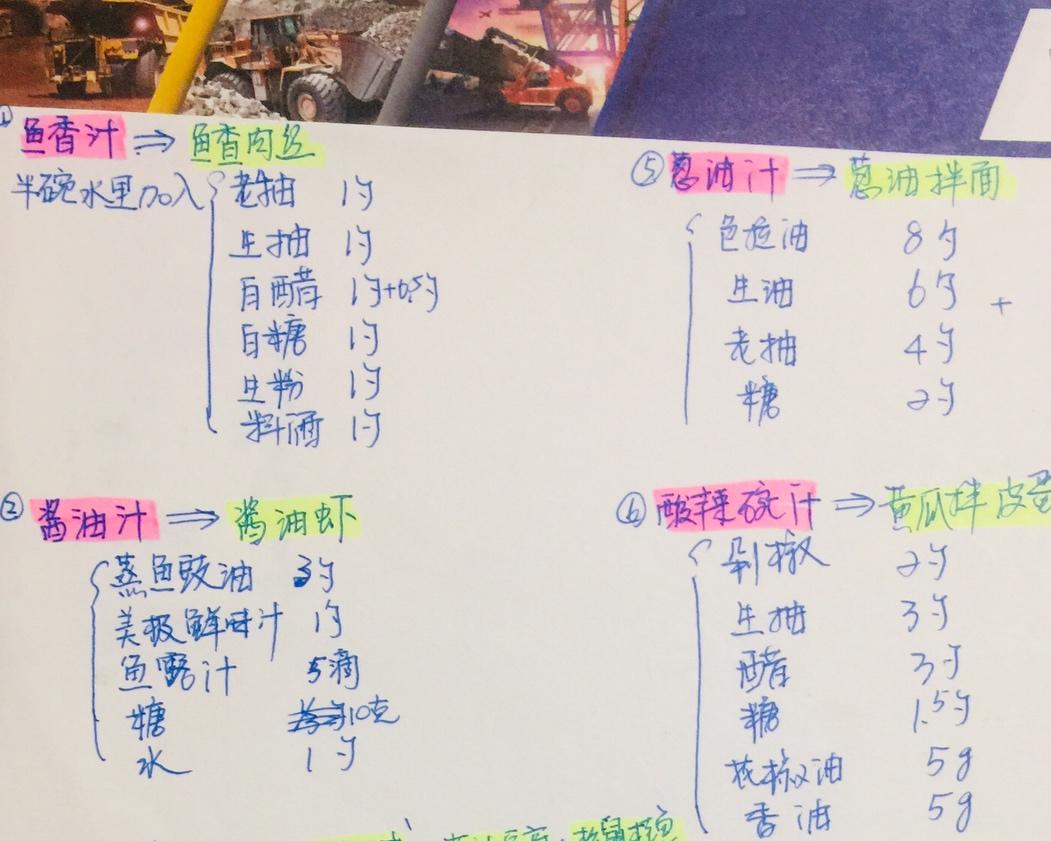 ① 鱼香汁 ⇒ 鱼香肉丝
半碗水里加入
老抽 1勺
生抽 1勺
白醋 1勺+0.5勺
白糖 1勺
生粉 1勺
料酒 1勺
② 酱油汁 ⇒ 酱油虾
蒸鱼豉油 3勺
美极鲜味汁 1勺
鱼露汁 5滴
糖 10克
水 1勺
⑤ 葱油汁 ⇒ 葱油拌面
色拉油 8勺
生油 6勺 +
老抽 4勺
糖 2勺
⑥ 酸辣碗汁 ⇒ 黄瓜拌皮蛋
剁椒 2勺
生抽 3勺
醋 3勺
糖 1.5勺
花椒油 5g
香油 5g